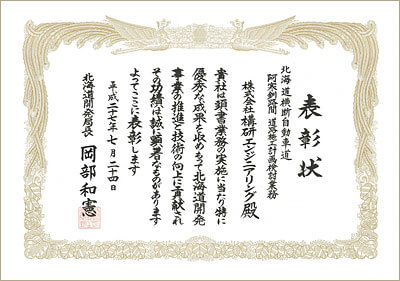 表彰状
北海道横断自動車道
阿寒釧路間 道路施工計画検討業務
株式会社構研エンジニアリング殿
貴社は頭書業務の実施に当たり特に
優秀な成果を収めもって北海道開発
事業の推進と技術の向上に貢献され
その功績は誠に顕著なものがあります
よってここに表彰します
平成二十七年七月二十四日
北海道開発局長 岡部和憲